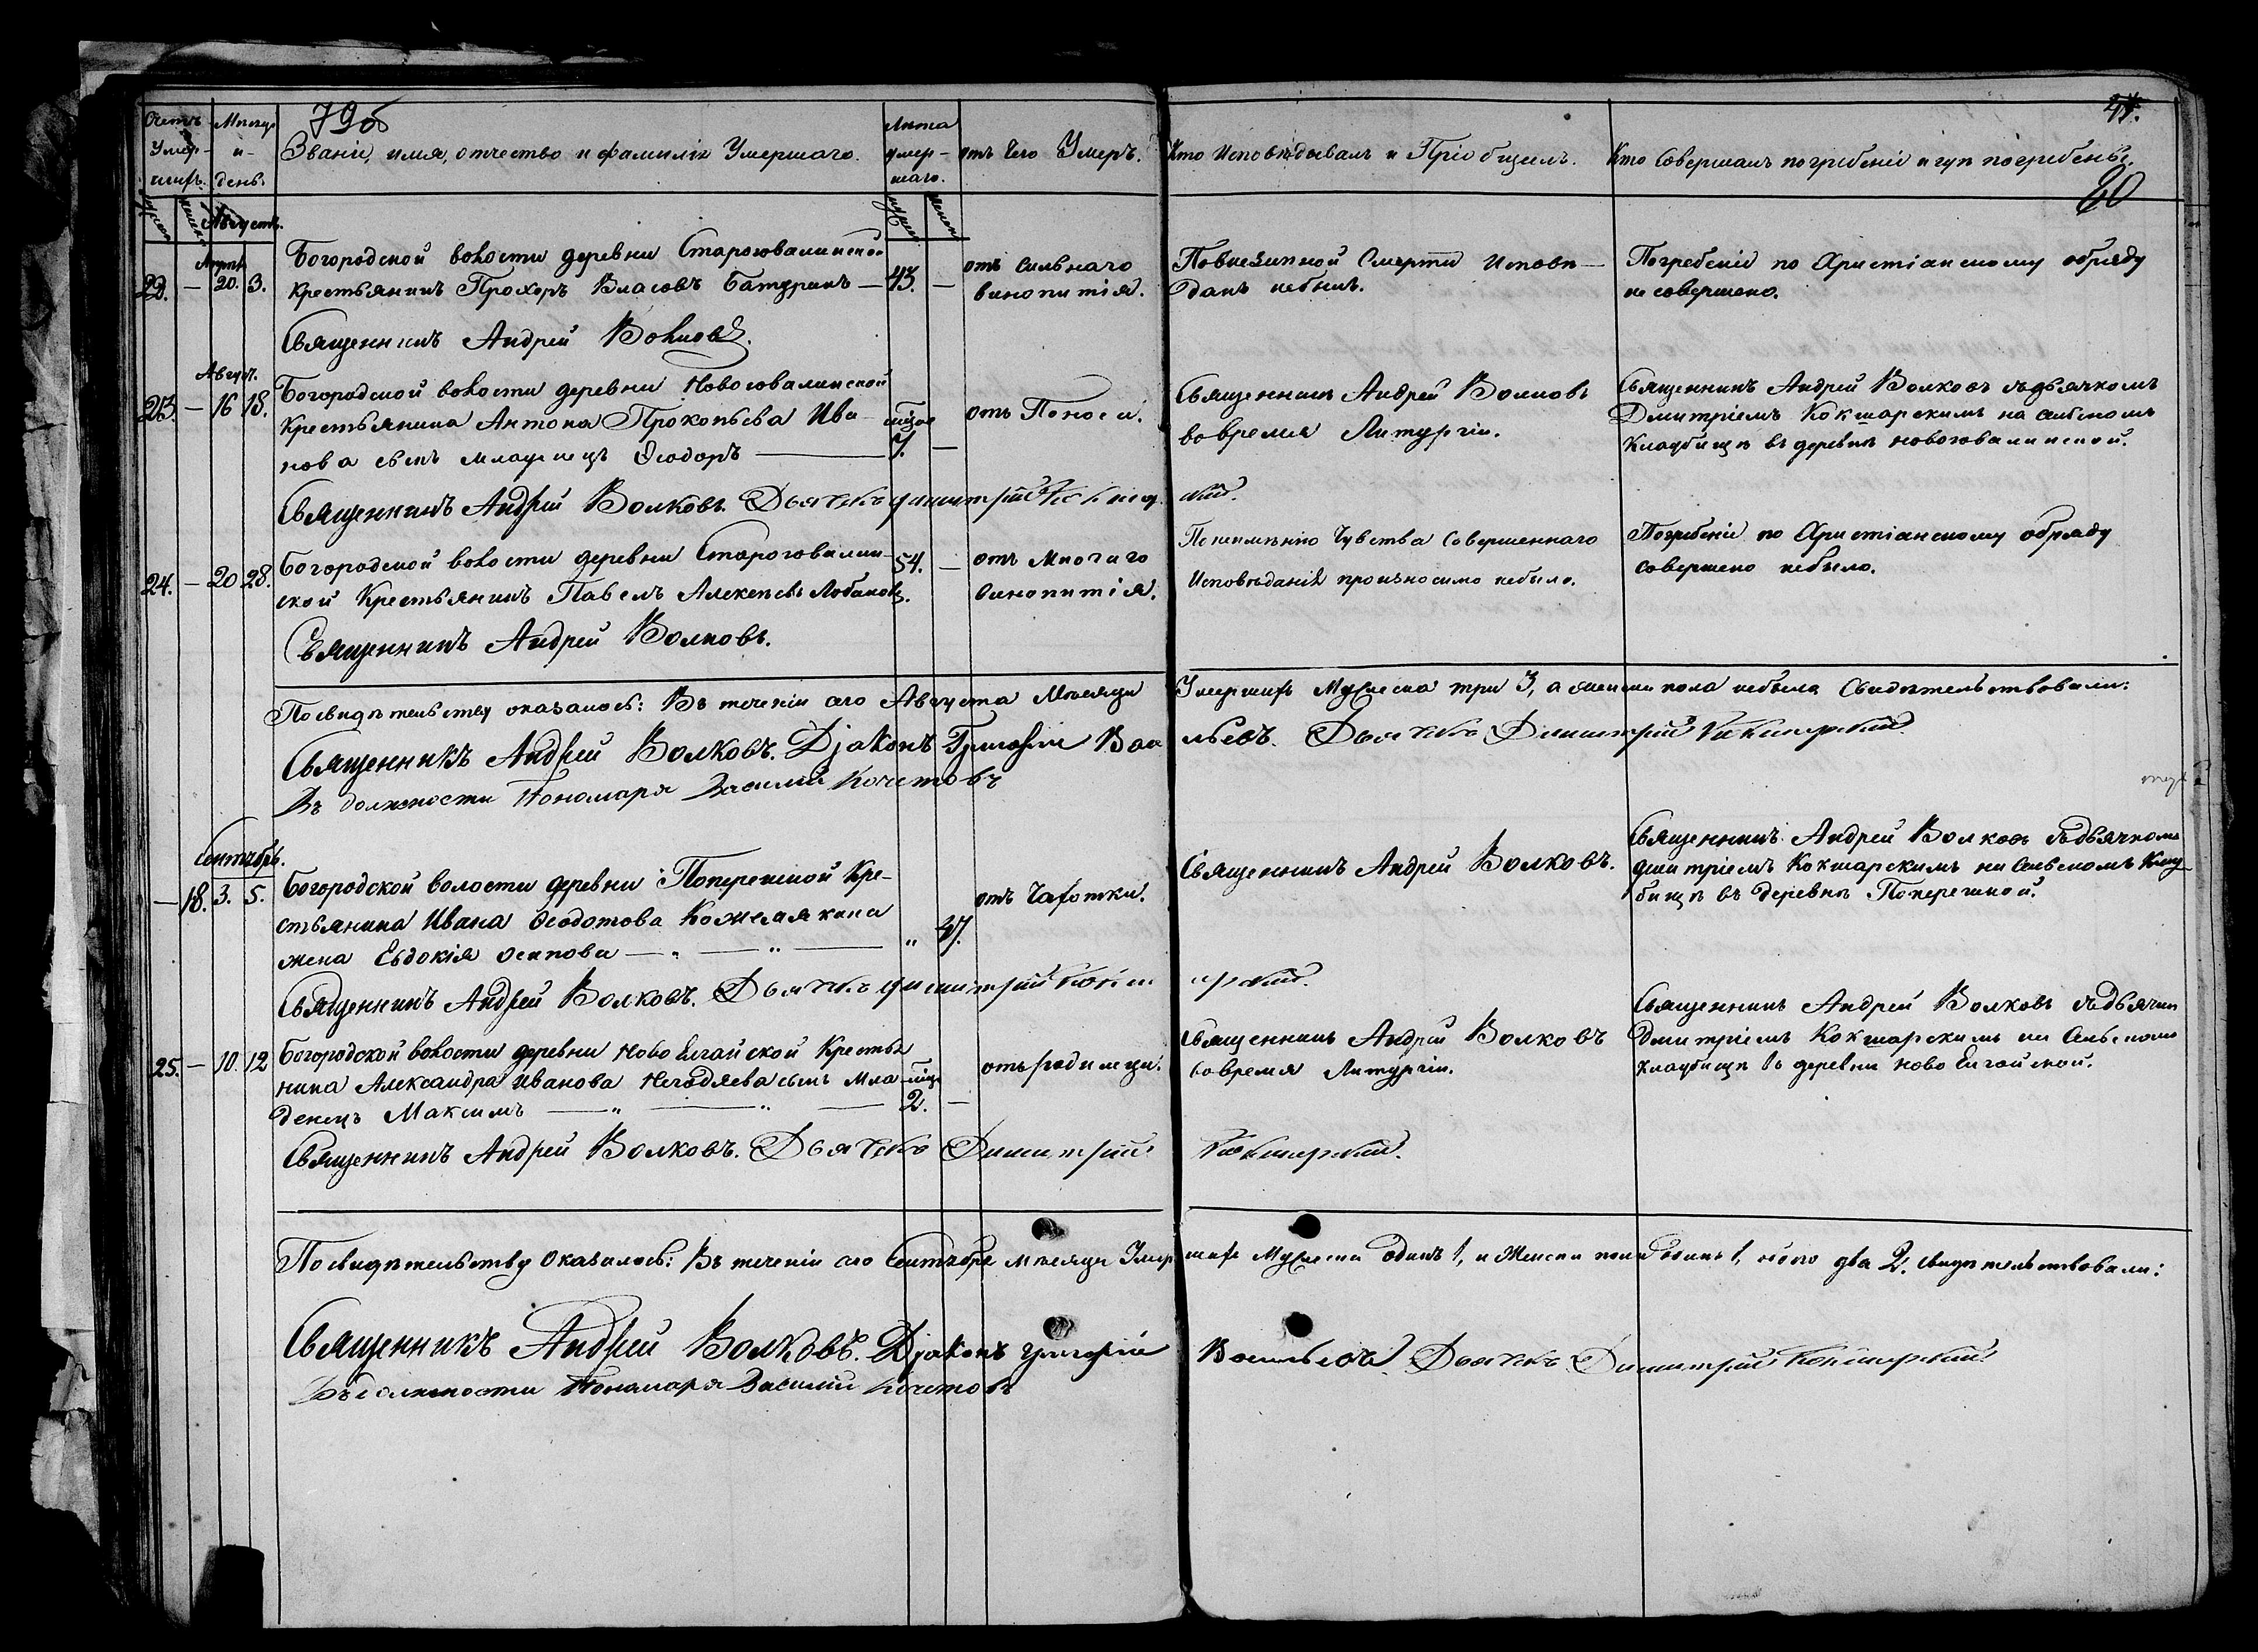 79об
Счетъ
Умер-
шихъ.
Мѣсяцъ
и
день.
Званіе, имя, отчество и фамилія Умершаго.
Лѣта
умер-
шаго.
отъ чего Умеръ.
Кто Исповѣдывалъ и Пріобщилъ.
Кто совершалъ погребеніе и гдѣ погребены.
80
Августъ.
22. — 20. 3.
Богородской волости деревни Староювалинской
крестьянинъ Прохоръ Власовъ Батуринъ — 43. —
отъ сильнаго
винопитія.
По внезапной Смерти Исповѣ-
данъ небылъ.
Погребеніе по Христіанскому обряду
не совершено.
Священникъ Андрей Волковъ.
Август.
23. — 16 18.
Богородской волости деревни Новоювалинской
Крестьянина Антона Прокопьева Ива-
нова сынъ младенецъ Ѳеодоръ —
отъ Поноса.
Священникъ Андрей Волковъ
вовремя Литургіи.
Священникъ Андрей Волковъ съ дьячкомъ
Дмитріемъ Кокшарскимъ на сельскомъ
Кладбищѣ въ деревнѣ новоювалинской.
Священникъ Андрей Волковъ. Дьячекъ Димитрій
24. — 20 28.
Богородской волости деревни Староювалин-
ской Крестьянинъ Павелъ Алексѣевъ Лобановъ.
54. —
отъ Многаго
винопитія.
По неимѣнію Чувства Совершеннаго
Исповѣданія произносимо небыло.
Погребеніе по Христіанскому обряду
совершено небыло.
Священникъ Андрей Волковъ.
По свидѣтельству оказалось: Въ теченіи сего Августа Мѣсяца Умершихъ Мужеска три 3, а женска пола небыло Свидѣтельствовали:
Священникъ Андрей Волковъ. Діаконъ Григорій Васильевъ. Дьячекъ Димитрій Кокшарскій.
Въ должности Пономаря Василій Кочетовъ
Сентябрь.
— 18. 3. 5.
Богородской волости деревни Поперешной Кре-
стьянина Ивана Ѳеодотова Кожемякина
жена Евдокія Осипова — " — " — "
отъ Чахотки.
Священникъ Андрей Волковъ.
Священникъ Андрей Волковъ съ дьячкомъ
димитріемъ Кокшарскимъ на Сельскомъ Клад-
бищѣ въ деревнѣ Поперешной.
Священникъ Андрей Волковъ. Дьячекъ Димитрій Кокшарскій.
25. — 10. 12
Богородской волости деревни Ново Елгайской Крестья
нина Александра Иванова Негодяева сынъ Мла-
денецъ Максимъ — " — " —
2. —
отъ родимца.
Священникъ Андрей Волковъ
вовремя Литургіи.
Священникъ Андрей Волковъ съ дьячком
Дмитріемъ Кокшарскимъ на Сельскомъ
кладбищѣ въ деревни ново Елгайской.
Священникъ Андрей Волковъ. Дьячекъ Димитрій Кокшарскій.
По свидѣтельству Оказалось: Въ теченіи сего Сентября мѣсяца Умершихъ Мужеска одинъ 1, и Женска пола одинъ 1, обоего два 2. свидѣтельствовали:
Священникъ Андрей Волковъ. Діаконъ Григорій Васильевъ. Дьячекъ Димитрій Кокшарскій
Въ должности Пономаря Василій Кочетовъ